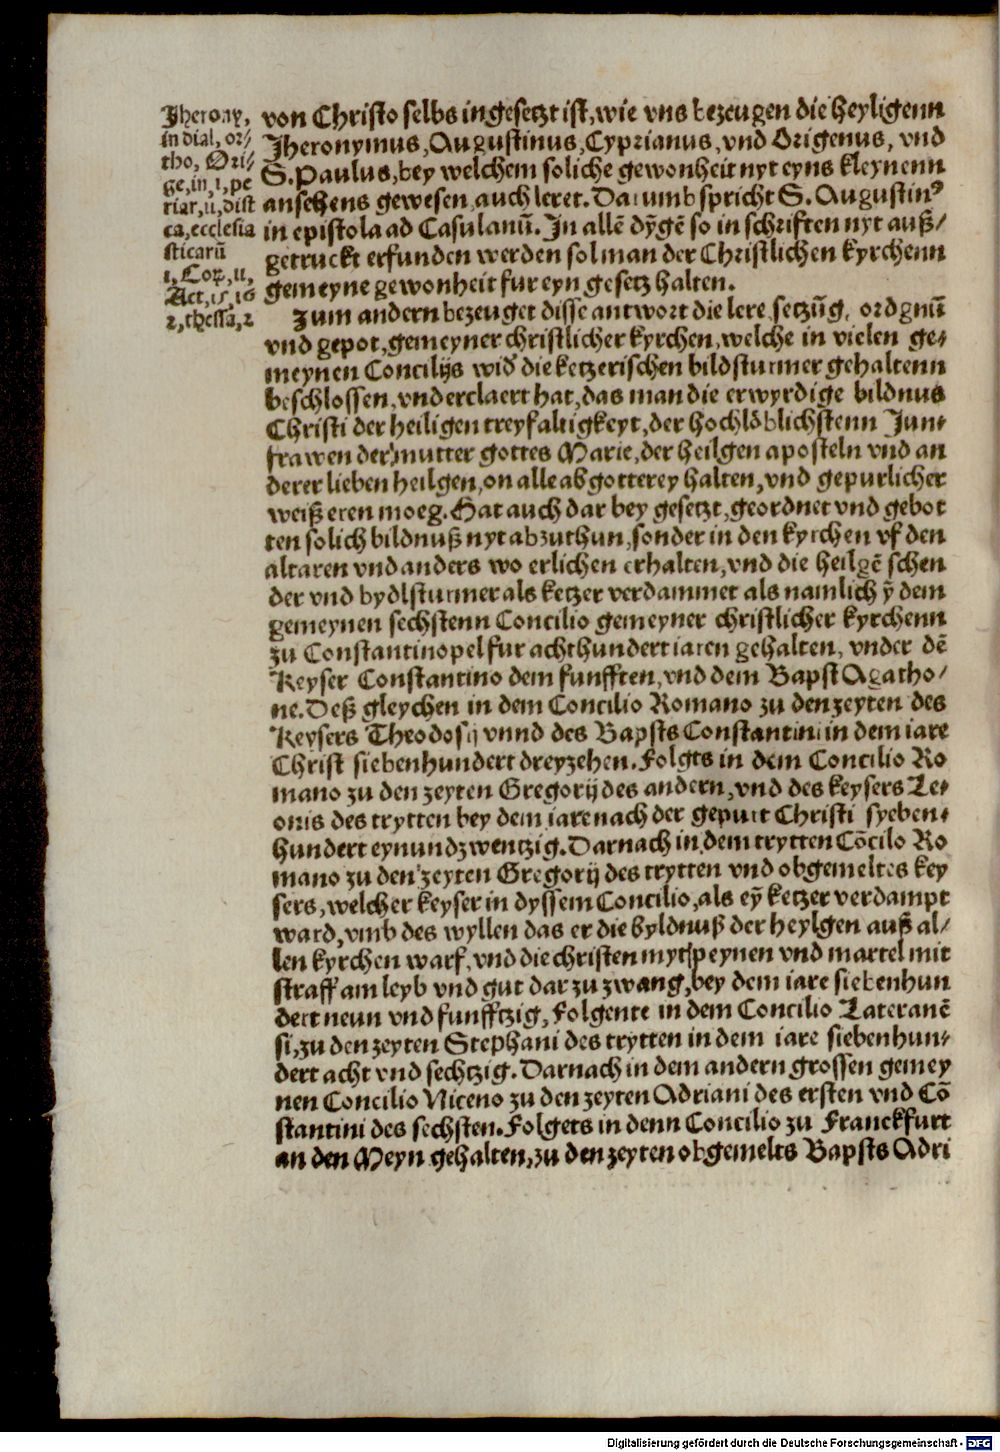 Jherony,
in dial, or/
tho, Ori/
ge, in, 1, pe
riar, ii, dist
ca, ecclesia
sticarū
1, Cor, 11,
Act, 15, 16
2, thessa, 2
von Christo selbs ingesetzt ist, wie vns bezeugen die heyligenn
Jheronymus, Augustinus, Cyprianus, vnd Origenus, vnd
S. Paulus, bey welchem soliche gewonheit nyt eyns kleynenn
ansehens gewesen, auch leret. Darumb spricht S. Augustinꝰ
in epistola ad Casulanū. Jn allē dȳgē so in schriften nyt auß/
getruckt erfunden werden sol man der Christlichen kyrchenn
gemeyne gewonheit fur eyn gesetz halten.
Zum andern bezeuget disse antwort die lere, setzūg, ordgnūl
vnd gepot, gemeyner christlicher kyrchen, welche in vielen ge⸗
meynen Concilijs wid̕ die ketzerischen bildsturmer gehaltenn
beschlossen, vnd erclaert hat, das man die erwyrdige bildnus
Christi der heiligen treyfaltigkeyt, der hochlöblichstenn Jun⸗
frawen der mutter gottes Marie, der heilgen aposteln vnd an
derer lieben heilgen, on alle abgotterey halten, vnd gepurlicher
weiß eren moeg. Hat auch dar bey gesetzt, geordnet vnd gebot
ten solich bildnuß nyt abzuthun, sonder in den kyrchen vf den
altaren vnd anders wo erlichen erhalten, vnd die heilgē schen
der vnd bydlsturmer als ketzer verdammet als namlich ȳ dem
gemeynen sechstenn Concilio gemeyner christlicher kyrchenn
zu Constantinopel fur achthundert iaren gehalten, vnder dē
Keyser Constantino dem funfften, vnd dem Bapst Agatho/
ne. Deß gleychen in dem Concilio Romano zu den zeyten des
Keysers Theodosij vnnd des Bapsts Constantini in dem iare
Christ siebenhundert dreyzehen. Folgts in dem Concilio Ro
mano zu den zeyten Gregorij des andern, vnd des keysers Le⸗
onis des trytten bey dem iare nach der gepurt Christi syeben⸗
hundert eynundzwentzig. Darnach in dem trytten Cōcilo Ro
mano zu den zeyten Gregorij des trytten vnd obgemeltes key
sers, welcher keyser in dyssem Concilio, als eȳ ketzer verdampt
ward, vmb des wyllen das er die byldnuß der heylgen auß al/
len kyrchen warf, vnd die christen myt peynen vnd martel mit
straff am leyb vnd gut dar zu zwang, bey dem iare siebenhun
dert neun vnd funfftzig, Folgente in dem Concilio Lateranē
si, zu den zeyten Stephani des trytten in dem iare siebenhun⸗
dert acht vnd sechtzig. Darnach in dem andern grossen gemey
nen Concilio Niceno zu den zeyten Adriani des ersten vnd Cō
stantini des sechsten. Folgets in denn Concilio zu Franckfurt
an den Meyn gehalten, zu den zeyten obgemelts Bapsts Adri
Digitalisierung gefördert durch die Deutsche Forschungsgemeinschaft - DFG